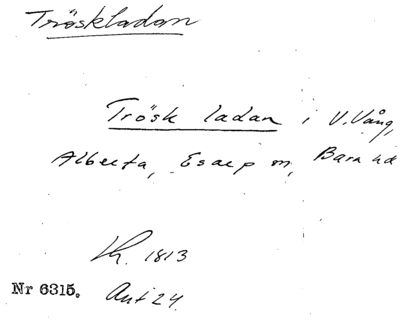 Tröskladan
Trösk ladan i V. Vång,
Alberta, Esarp m, Bara hd
Lh. 1813
Nr 6315. Ant 24